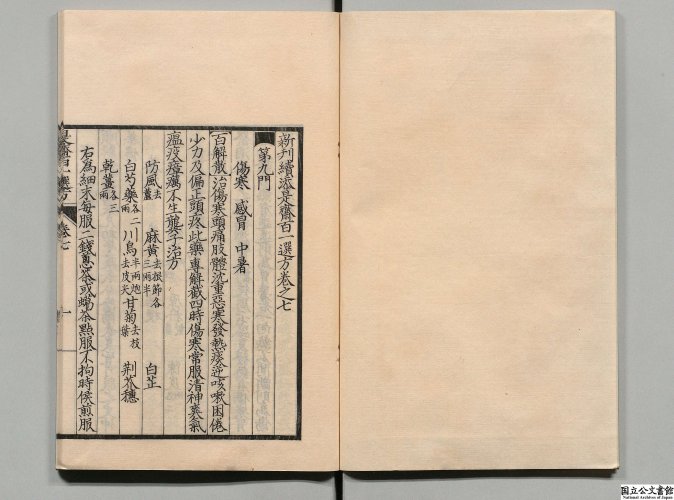 新刊續添是齋百一選方卷之七
第九門
傷寒 感冒 中暑
百解散治傷寒頭痛肢體沈重惡寒發熱痰逆咳嗽困倦
少力及偏正頭疼此藥專解截四時傷寒常服清神爽氣
瘟疫瘴癘不生龔子治方
防風去蘆 麻黃去根節各三兩半 白芷
白芍藥各二兩 川烏半兩炮去皮尖 甘菊去枝葉 荆芥穗
乾薑各三兩
右為細末每服二錢蔥茶或蠟茶點服不拘時候煎服
是齋百一選方 卷七 一
国立公文書館
National Archives of Japan